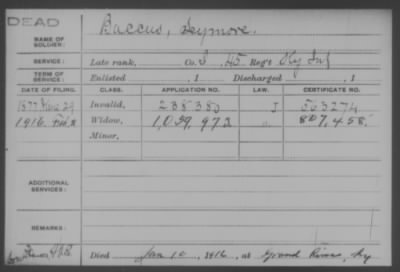 DEAD
NAME OF SOLDIER: Baccus, Seymore.
SERVICE: Late rank, Co. I, 45 Reg't Ky Inf
TERM OF SERVICE: Enlisted , 1 Discharged , 1
DATE OF FILING. CLASS. APPLICATION NO. LAW. CERTIFICATE NO.
1877 29 Invalid, 238380 J 563274
1916. Feb. 8 Widow, 1,059,973 " 807,458.
Minor,
ADDITIONAL SERVICES:
REMARKS:
Died Jan 10, 1916, at Grand Rivers, Ky